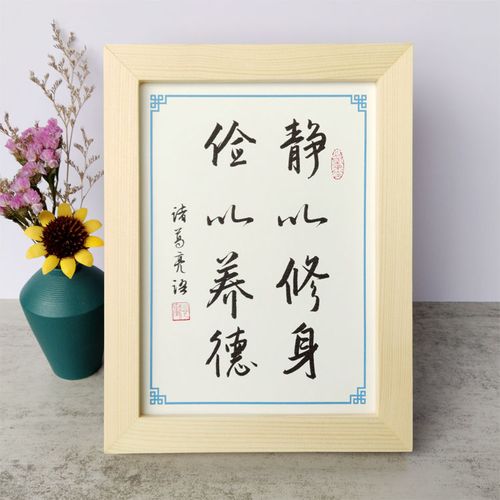 静以修身
俭以养德
诸葛亮语